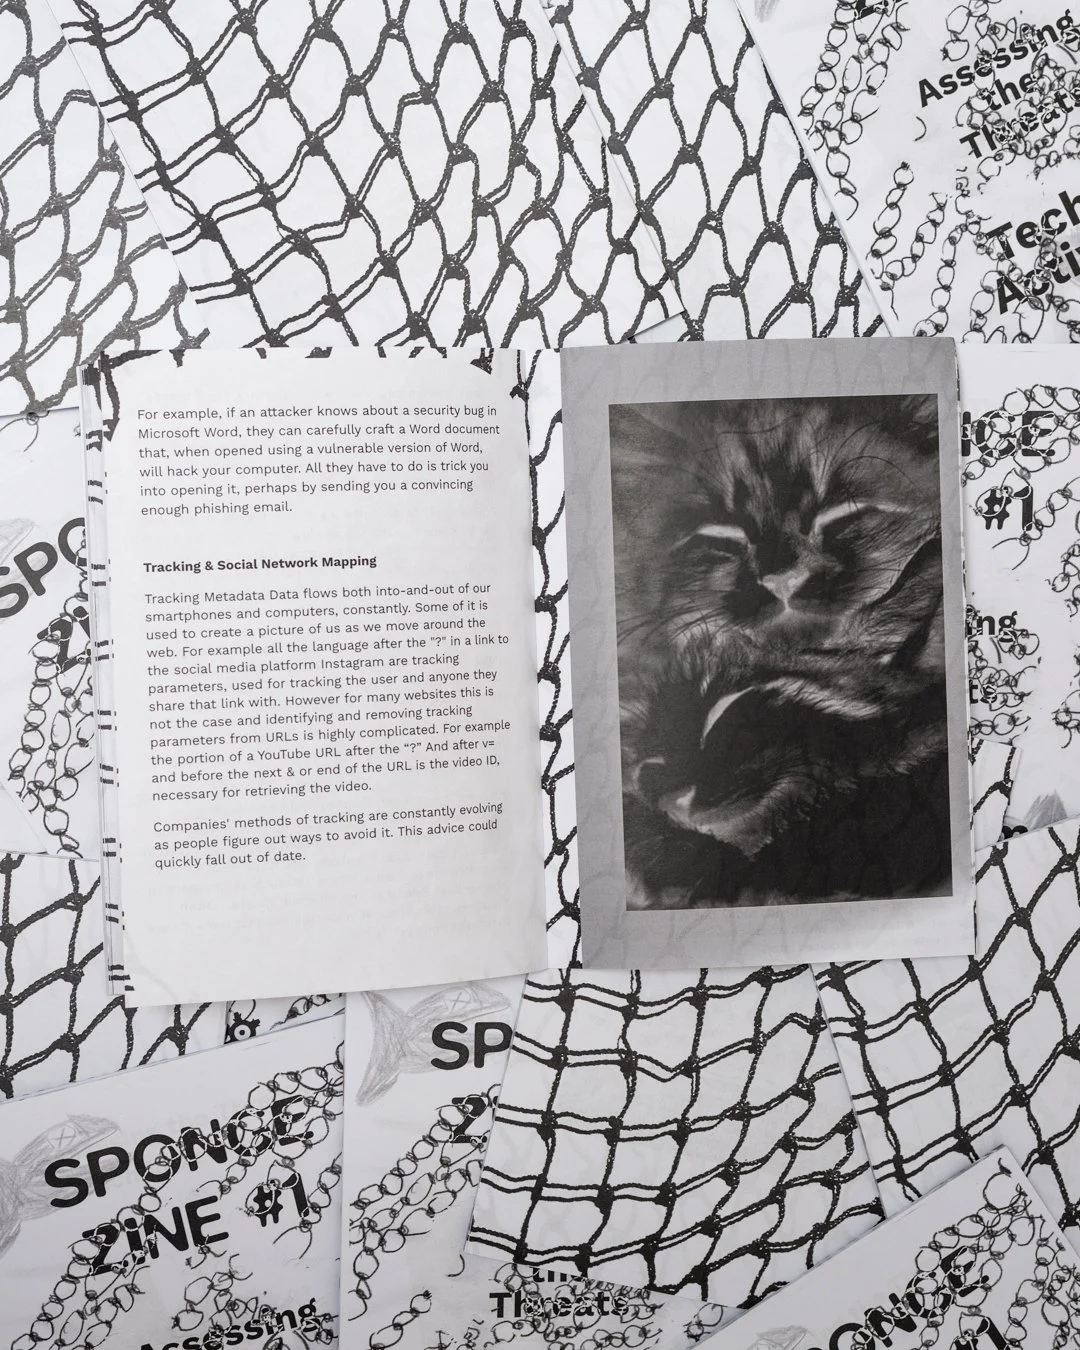 Assessing
the
Threats
Tech
For example, if an attacker knows about a security bug in
Microsoft Word, they can carefully craft a Word document
that, when opened using a vulnerable version of Word,
will hack your computer. All they have to do is trick you
into opening it, perhaps by sending you a convincing
enough phishing email.
Tracking & Social Network Mapping
Tracking Metadata Data flows both into-and-out of our
smartphones and computers, constantly. Some of it is
used to create a picture of us as we move around the
web. For example all the language after the "?" in a link to
the social media platform Instagram are tracking
parameters, used for tracking the user and anyone they
share that link with. However for many websites this is
not the case and identifying and removing tracking
parameters from URLs is highly complicated. For example
the portion of a YouTube URL after the “?” And after v=
and before the next & or end of the URL is the video ID,
necessary for retrieving the video.
Companies' methods of tracking are constantly evolving
as people figure out ways to avoid it. This advice could
quickly fall out of date.
#1
SPO
SP
SPONGE
ZiNE #1
Assessing
the
Threats